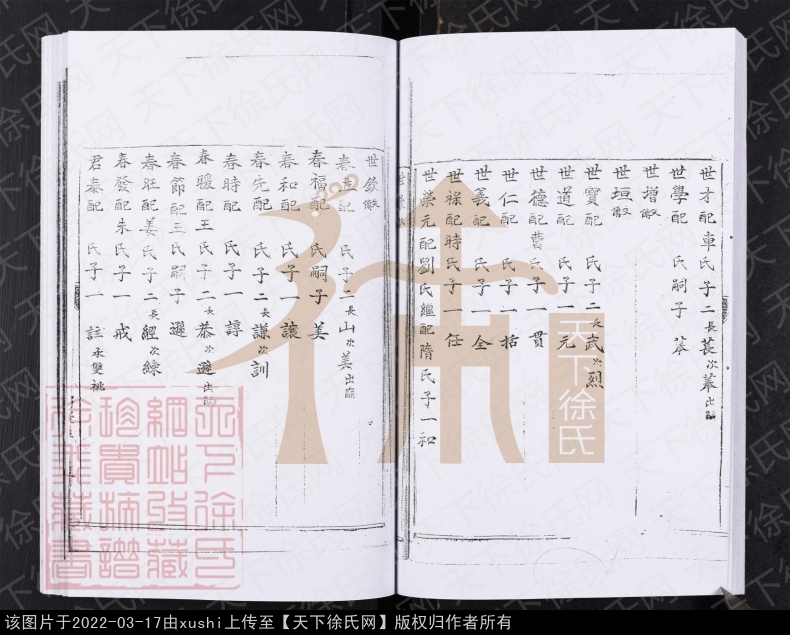 世才配車氏子二長萇次莘出嗣
世學配 氏嗣子 莘
世增
世垣
世寶配 氏子二長武次烈
世道配 氏子一元
世德配曹氏子一貫
世仁配 氏子一枯
世義配 氏子一全
世祿配時氏子一任
世榮元配劉氏繼配隋氏子一和
世欽
春 配 氏子二長山次美出嗣
春福配 氏嗣子 美
春和配 氏子一讓
春先配 氏子二長謙次訓
春時配 氏子一諄
春暖配王氏子二長恭次遜出嗣
春節配王氏嗣子 遜
春旺配姜氏子二長經次綠
春發配朱氏子一戒
君泰配 氏子一 註
天下徐氏
天下徐氏網
該图片于2022-03-17由xushi上传至【天下徐氏网】版权归作者所有